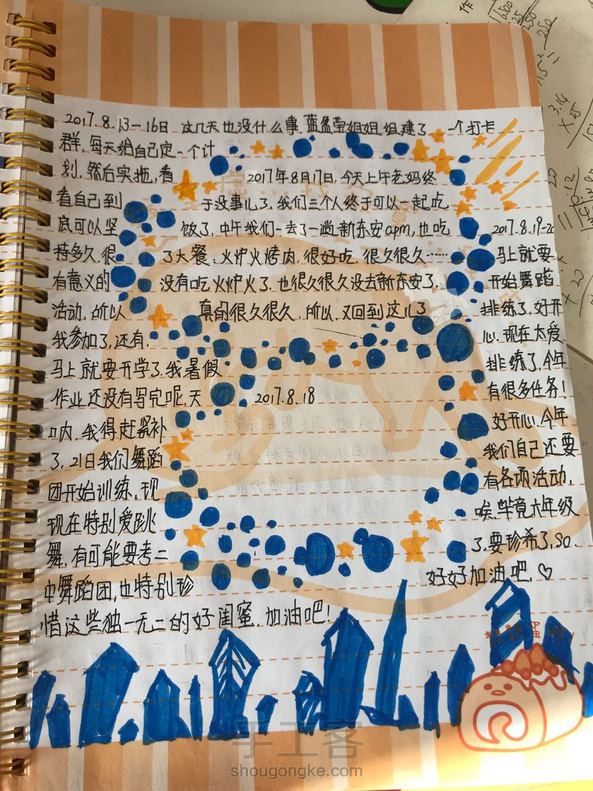 2017.8.13—16日 这几天也没什么事,蓝盈莹姐姐组建了一个打卡
群,每天给自己定一个计
划,然后实施,看
看自己到
底可以坚
持多久,很
有意义的
活动,所以
我参加了,还有,
马上就要开学了,我暑假
作业还没有写完呢,天
呐,我得赶紧补
了,21日我们舞蹈
团开始训练,现
现在特别爱跳
舞,有可能要考二
中舞蹈团,也特别珍
惜这些独一无二的好闺蜜,加油吧!
2017年8月17日,今天上午老妈终
于没事儿了,我们三个人终于可以一起吃
饭了,中午我们一去了一尚新东安apm,也吃
了大餐,火炉火烤肉,很好吃,很久很久……
没有吃火炉火了,也很久很久没去新东安了,
真的很久很久,所以,又回到这儿了
2017.8.18
2017.8.19-20
马上就要
开始舞蹈
排练了,好开
心,现在太爱
排练了,今年
有很多任务!
好开心,今年
我们自己还要
有各项活动,
唉,毕竟六年级
了,要珍希了,so
好好加油吧,♡
手工客
shougongke.com